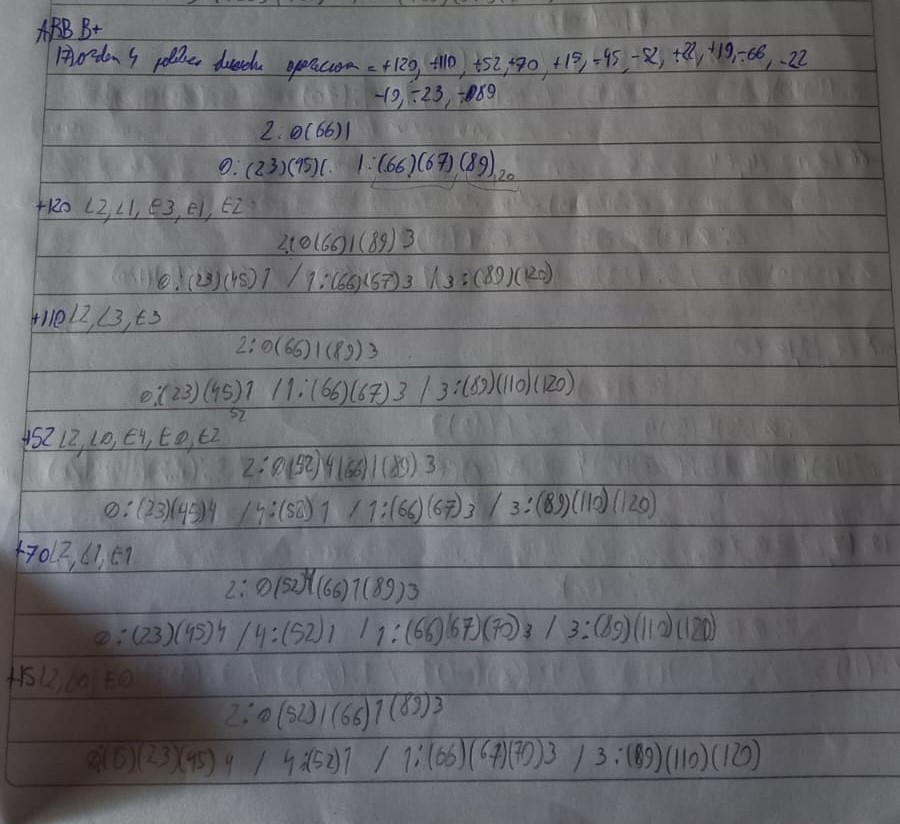 ARB B+
17) orden 4 política derecha operaciones = +120, +110, +52, +70, +15, -45, -52, +22, +19, -66, -22
-19, -23, -89
2: 0(66)1
0: (23)(45)( 1:(66)(67)(89) 120
+120 L2, L1, E3, E1, E2
2: 0(66)1(89)3
0:(23)(45)1 / 1:(66)(67)3 / 3:(89)(120)
+110 L2, L3, E3
2: 0(66)1(89)3
0:(23)(45)1 / 1:(66)(67)3 / 3:(89)(110)(120)
52
+52 L2, L0, E4, E0, E2
2: 0(52)4(66)1(89)3
0:(23)(45)4 / 4:(52)1 / 1:(66)(67)3 / 3:(89)(110)(120)
+70 L2, L1, E1
2: 0(52)4(66)1(89)3
0:(23)(45)4 / 4:(52)1 / 1:(66)(67)(70)3 / 3:(89)(110)(120)
+15 L2, L0, E0
2: 0(52)1(66)1(89)3
(15)(23)(45)4 / 4:(52)1 / 1:(66)(67)(70)3 / 3:(89)(110)(120)